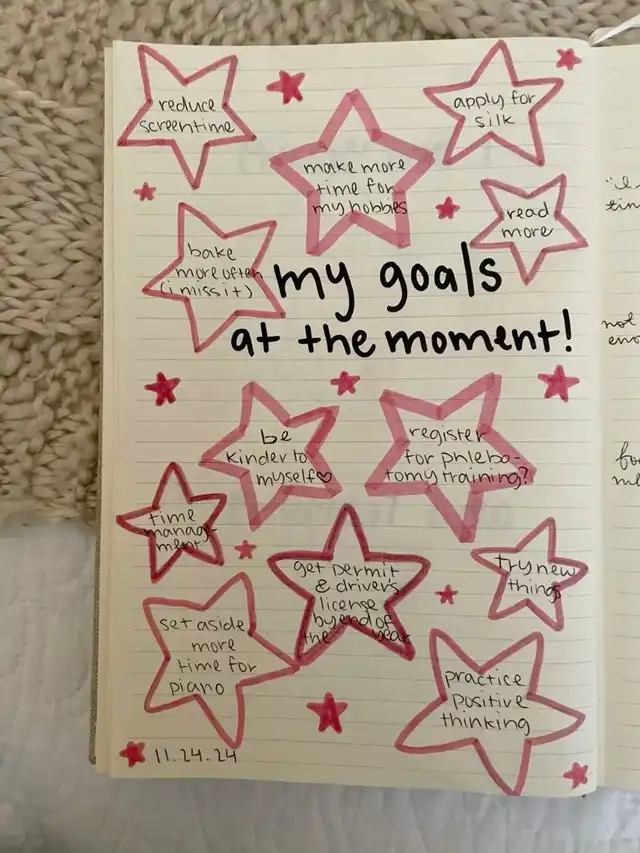 reduce
screentime
apply for
silk
make more
time for
my hobbies
read
more
bake
more often
(i miss it)
my goals
at the moment!
be
kinder to
myself♡
register
for phlebo-
tomy training?
time
manage-
ment
get permit
& drivers
license
by end of
the year
try new
things
set aside
more
time for
piano
practice
positive
thinking
11.24.24
not